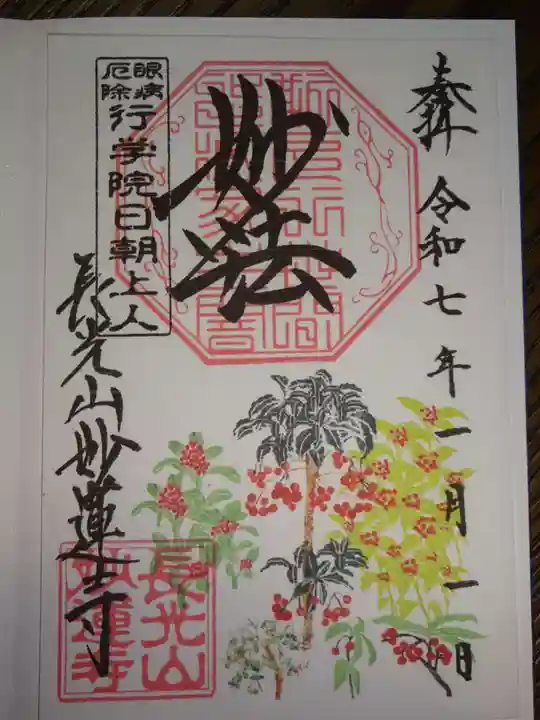 奉拝
令和七年一月一日
妙法
眼病
厄除
行学院日朝上人
長光山妙蓮寺
長光山
妙蓮寺